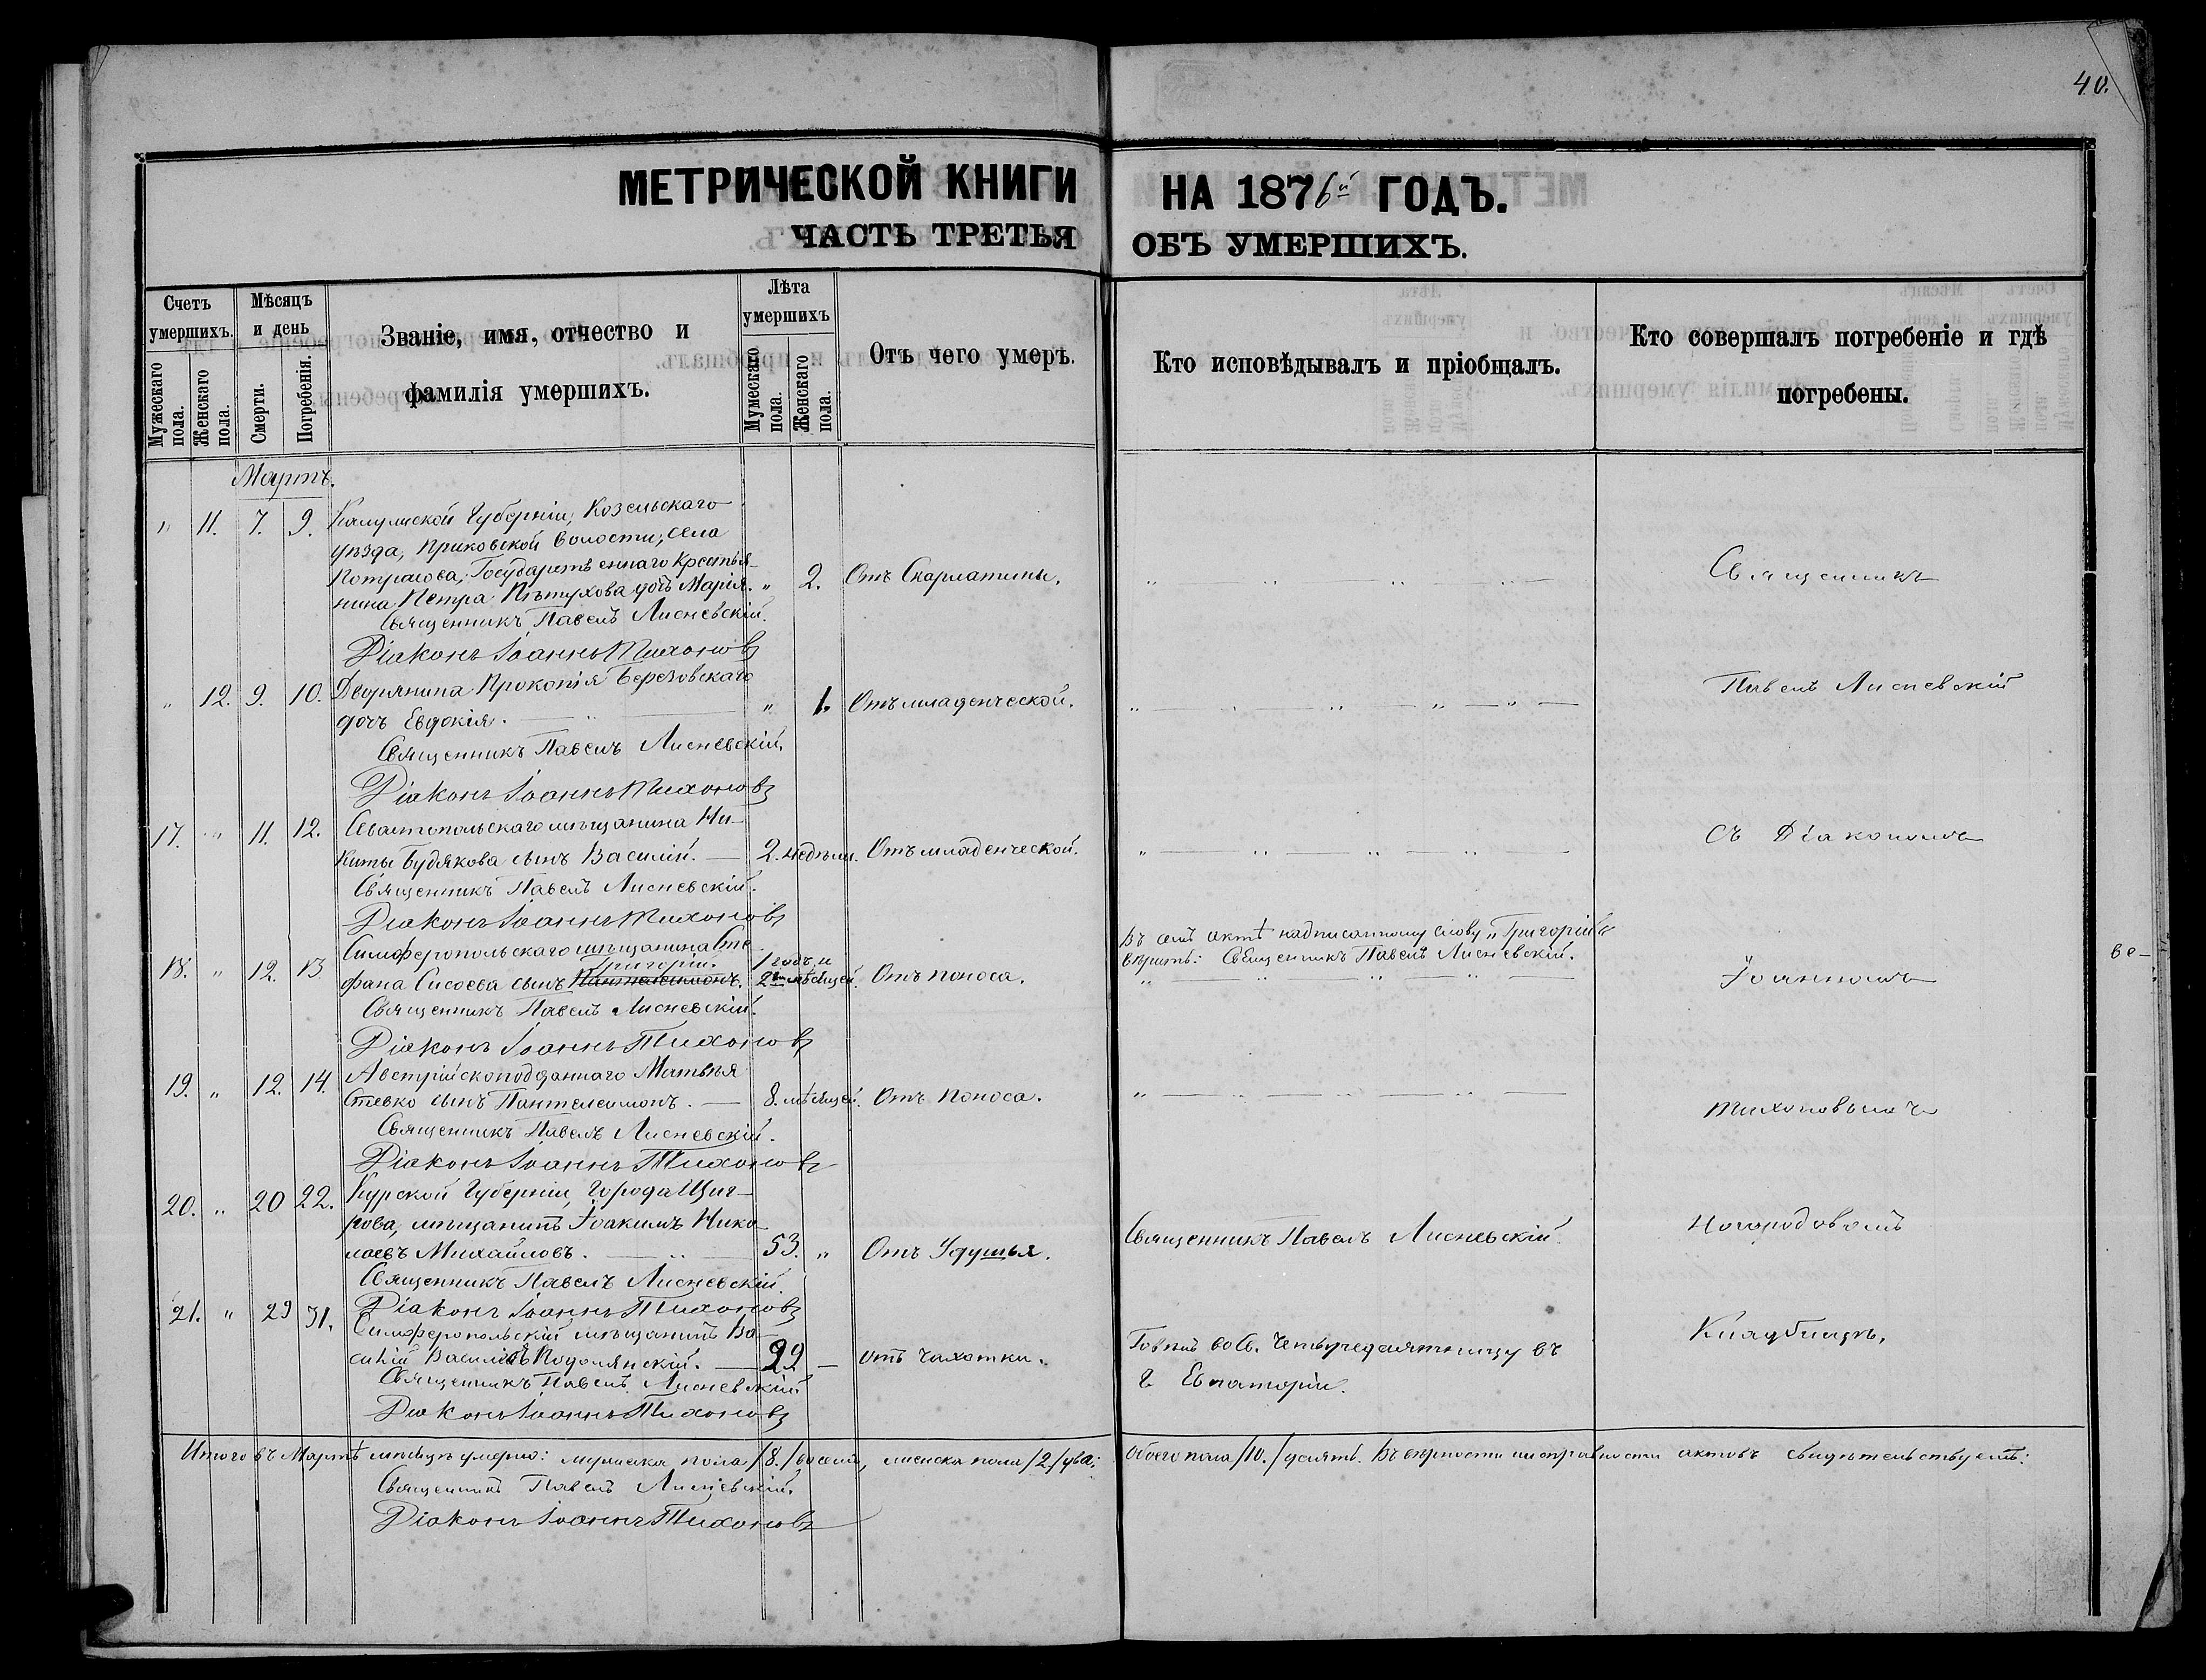 40.
МЕТРИЧЕСКОЙ КНИГИ НА 1876й ГОДЪ.
ЧАСТЬ ТРЕТЬЯ ОБЪ УМЕРШИХЪ.
Счетъ умершихъ.
Мужескаго пола.
Женскаго пола.
Мѣсяцъ и день
Смерти.
Погребенія.
Званіе, имя, отчество и
фамилія умершихъ.
Лѣта умершихъ
Мумескаго пола.
Женскаго пола.
Отъ чего умеръ.
Кто исповѣдывалъ и пріобщалъ.
Кто совершалъ погребеніе и гдѣ
погребены.
Мартъ.
" 11. 7. 9. Калужской Губерніи, Козельскаго
уѣзда, волости, села
Государственнаго Крестья-
нина Петра Пѣтухова дочь Марія. " 2. Отъ Скарлатины.
Священникъ Павелъ Лисневскій.
Діаконъ Іоаннъ Тихоновъ
" 12. 9. 10. Дворянина Прокопія Березовскаго
дочь Евдокія. " 1. Отъ младенческой.
Священникъ Павелъ Лисневскій.
Діаконъ Іоаннъ Тихоновъ
17. " 11. 12. Севастопольскаго мѣщанина Ни-
киты Будякова сынъ Василій. 2. недѣли. Отъ младенческой.
Священникъ Павелъ Лисневскій.
Діаконъ Іоаннъ Тихоновъ
18. " 12. 13 Симферопольскаго мѣщанина Сте-
Григорій. 1 годъ и
фана Сисоева сынъ Пантелеимонъ. 2 мѣсяцей. Отъ поноса.
Священникъ Павелъ Лисневскій.
Діаконъ Іоаннъ Тихоновъ
19. " 12. 14. Австрійскоподданнаго Матвѣя
Стевко сынъ Пантелеимонъ. 8. мѣсяцей. Отъ поноса.
Священникъ Павелъ Лисневскій.
Діаконъ Іоаннъ Тихоновъ
20. " 20 22. Курской Губерніи, Города Щиг-
рова, мѣщанинъ Іоакимъ Нико-
лаевъ Михайловъ. 53. " Отъ Удушья.
Священникъ Павелъ Лисневскій.
Діаконъ Іоаннъ Тихоновъ
21. " 29 31. Симферопольскій мѣщанинъ Ва-
силій Васильевъ Подолянскій. 22 — отъ чахотки.
Священникъ Павелъ Лисневскій
Діаконъ Іоаннъ Тихоновъ
Итого въ Мартѣ мѣсяцѣ умерло: мужеска пола /8./ восемь, женска пола /2/ два;
Священникъ Павелъ Лисневскій.
Діаконъ Іоаннъ Тихоновъ
Въ семъ актѣ надписанному слову „Григорій“
вѣрить: Священникъ Павелъ Лисневскій.
Священникъ Павелъ Лисневскій.
Говѣлъ во Св. Четыредесятницу въ
г. Евпаторіи.
Обоего пола /10./ десять. Въ вѣрности и исправности актовъ свидѣтельствуемъ:
Священникъ
Павелъ Лисневскій
съ Діакономъ
Іоанномъ
Тихоновымъ
на городовомъ
Кладбищѣ.
ве-